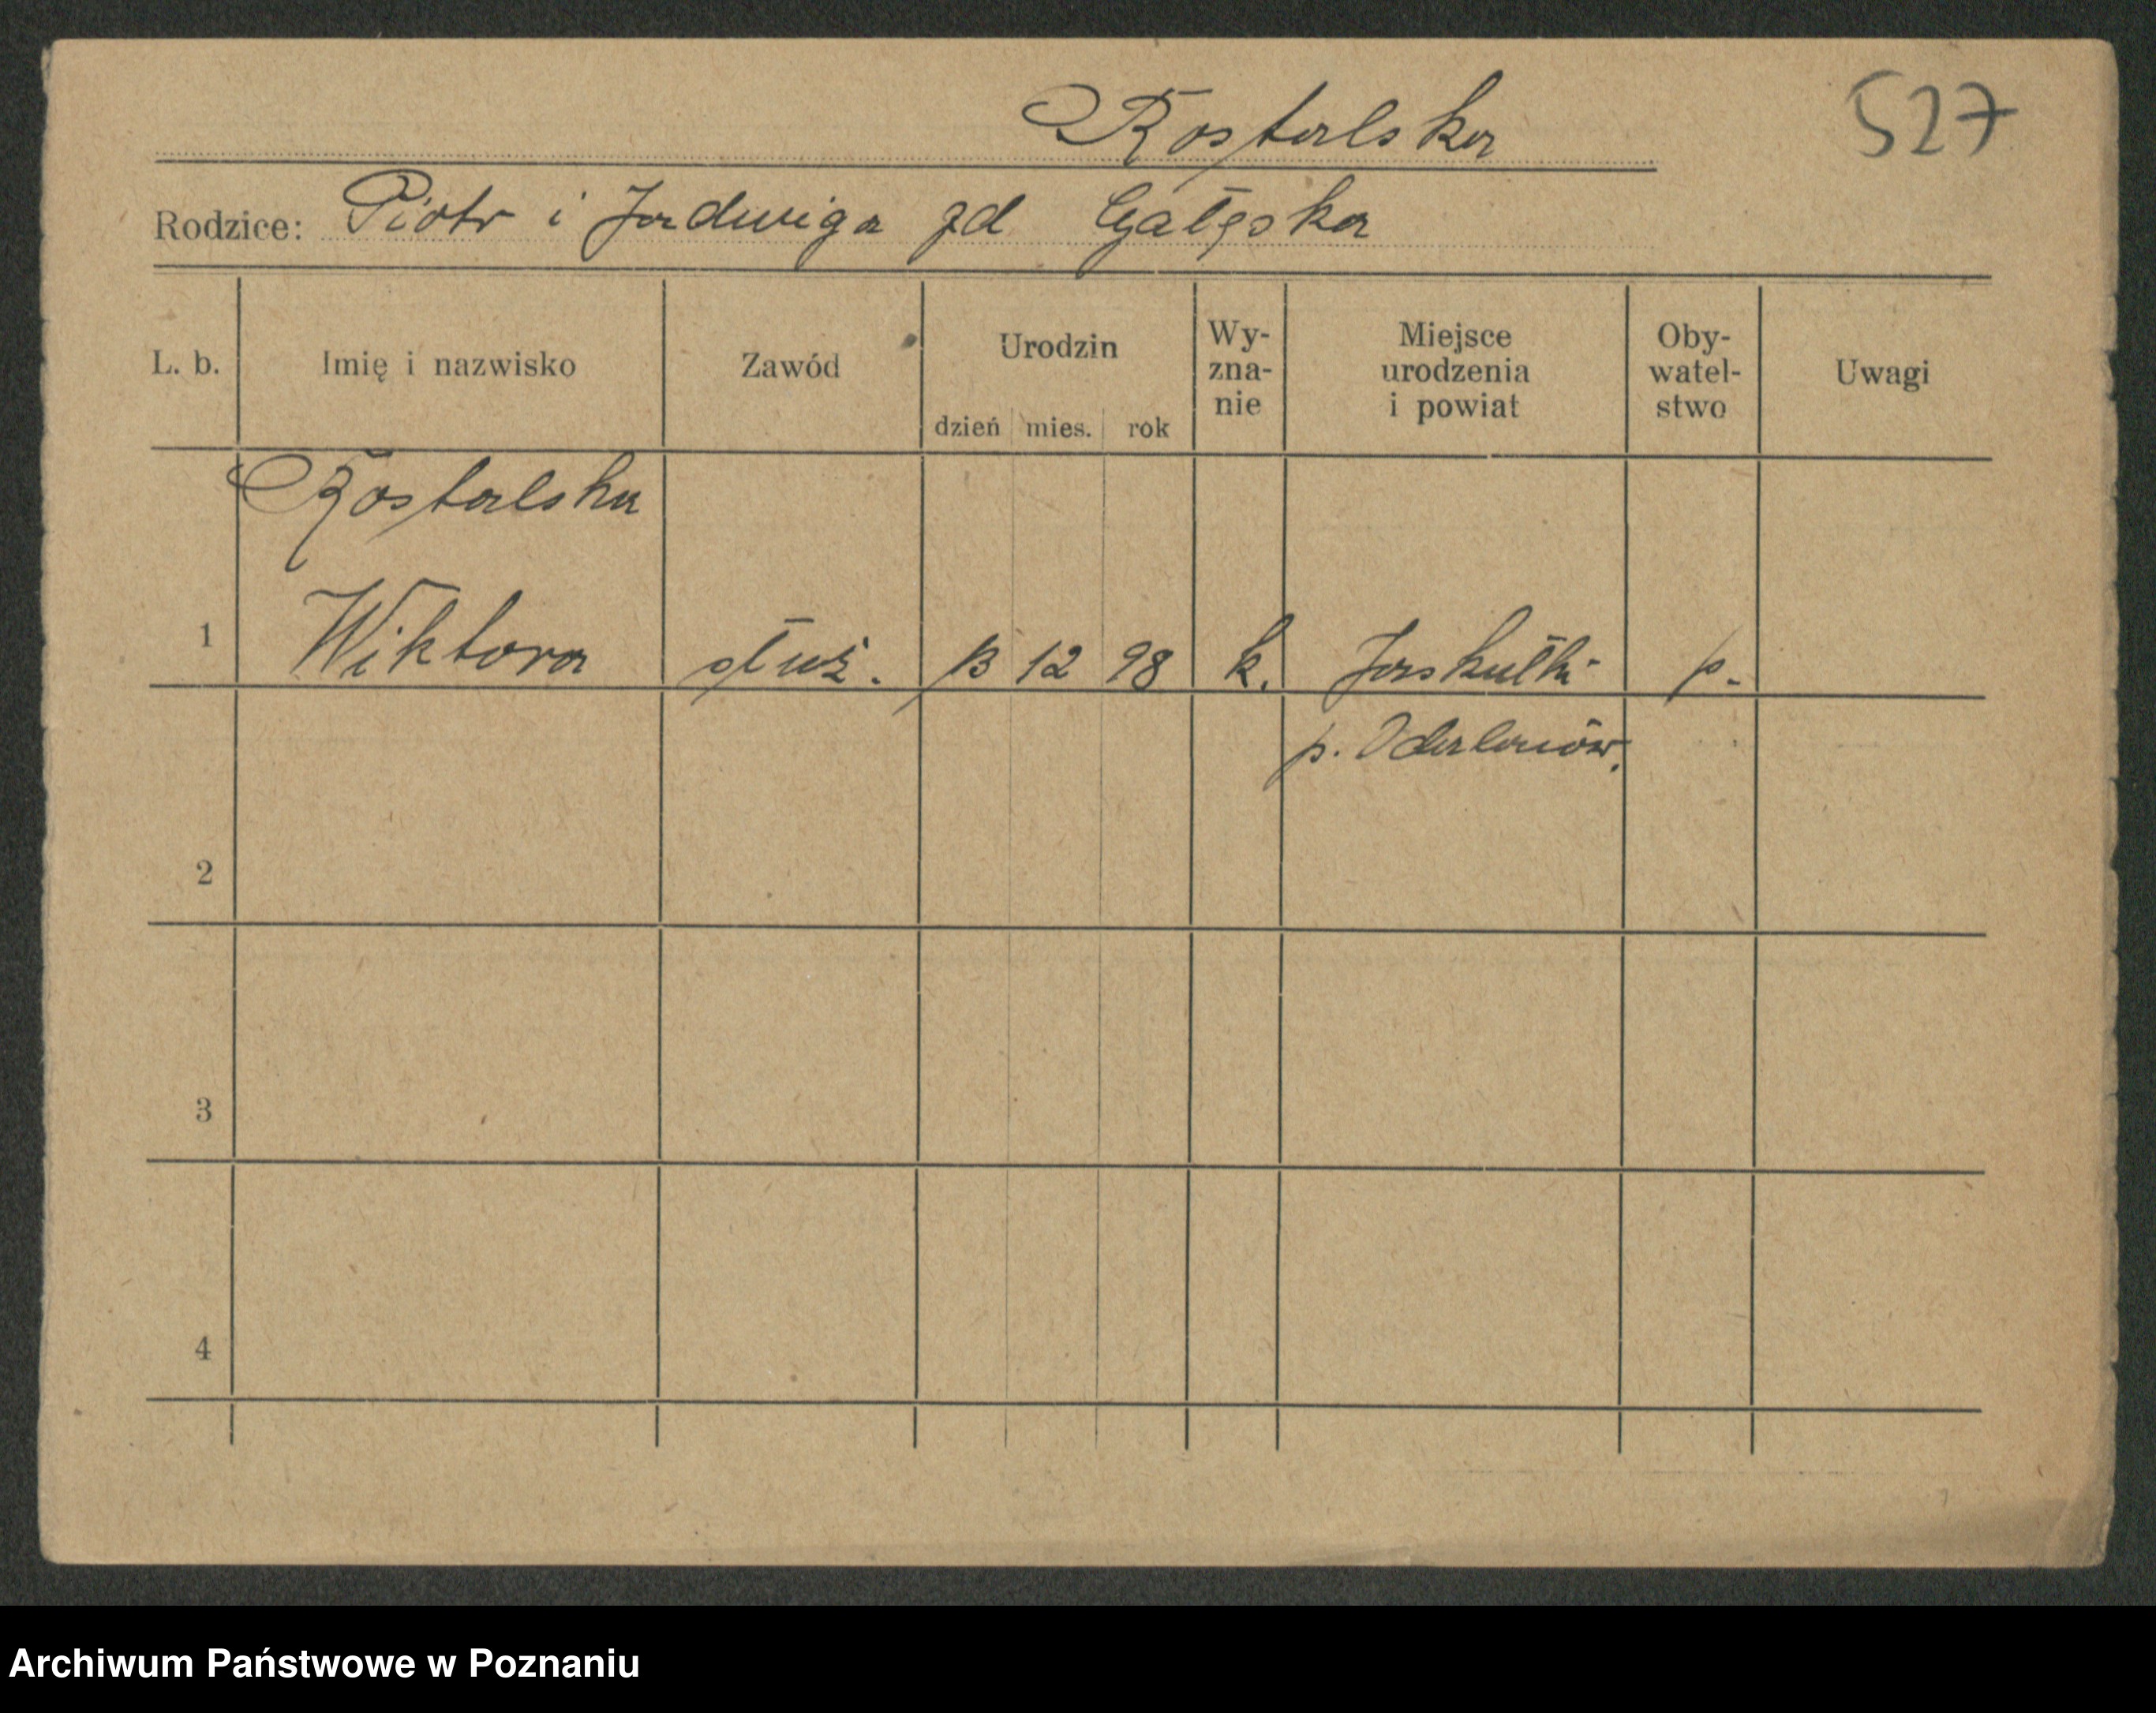 Rostalska
527
Rodzice: Piotr i Jadwiga zd Gałęska
L. b.
Imię i nazwisko
Zawód
Urodzin
dzień mies. rok
Wy-
zna-
nie
Miejsce
urodzenia
i powiat
Oby-
watel-
stwo
Uwagi
Rostalska
1 Wiktora służ. 13 12 98 k. Jaskułki p.
p. Odalanów.
2
3
4
Archiwum Państwowe w Poznaniu